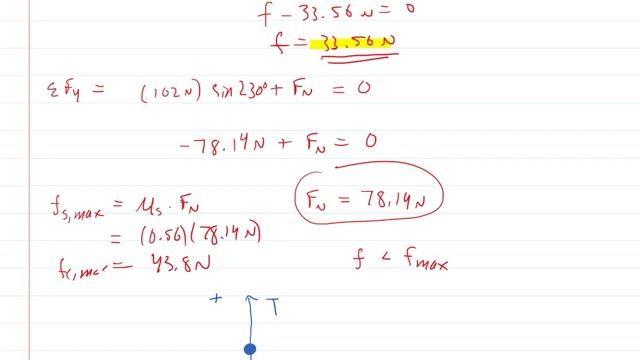 f - 33.56 N = 0
f = 33.56 N
ΣFy = (102N) sin230° + FN = 0
-78.14N + FN = 0
FN = 78.14N
fs,max = μs · FN
= (0.56)(78.14N)
fs,max = 43.8N
f < fmax
+ T